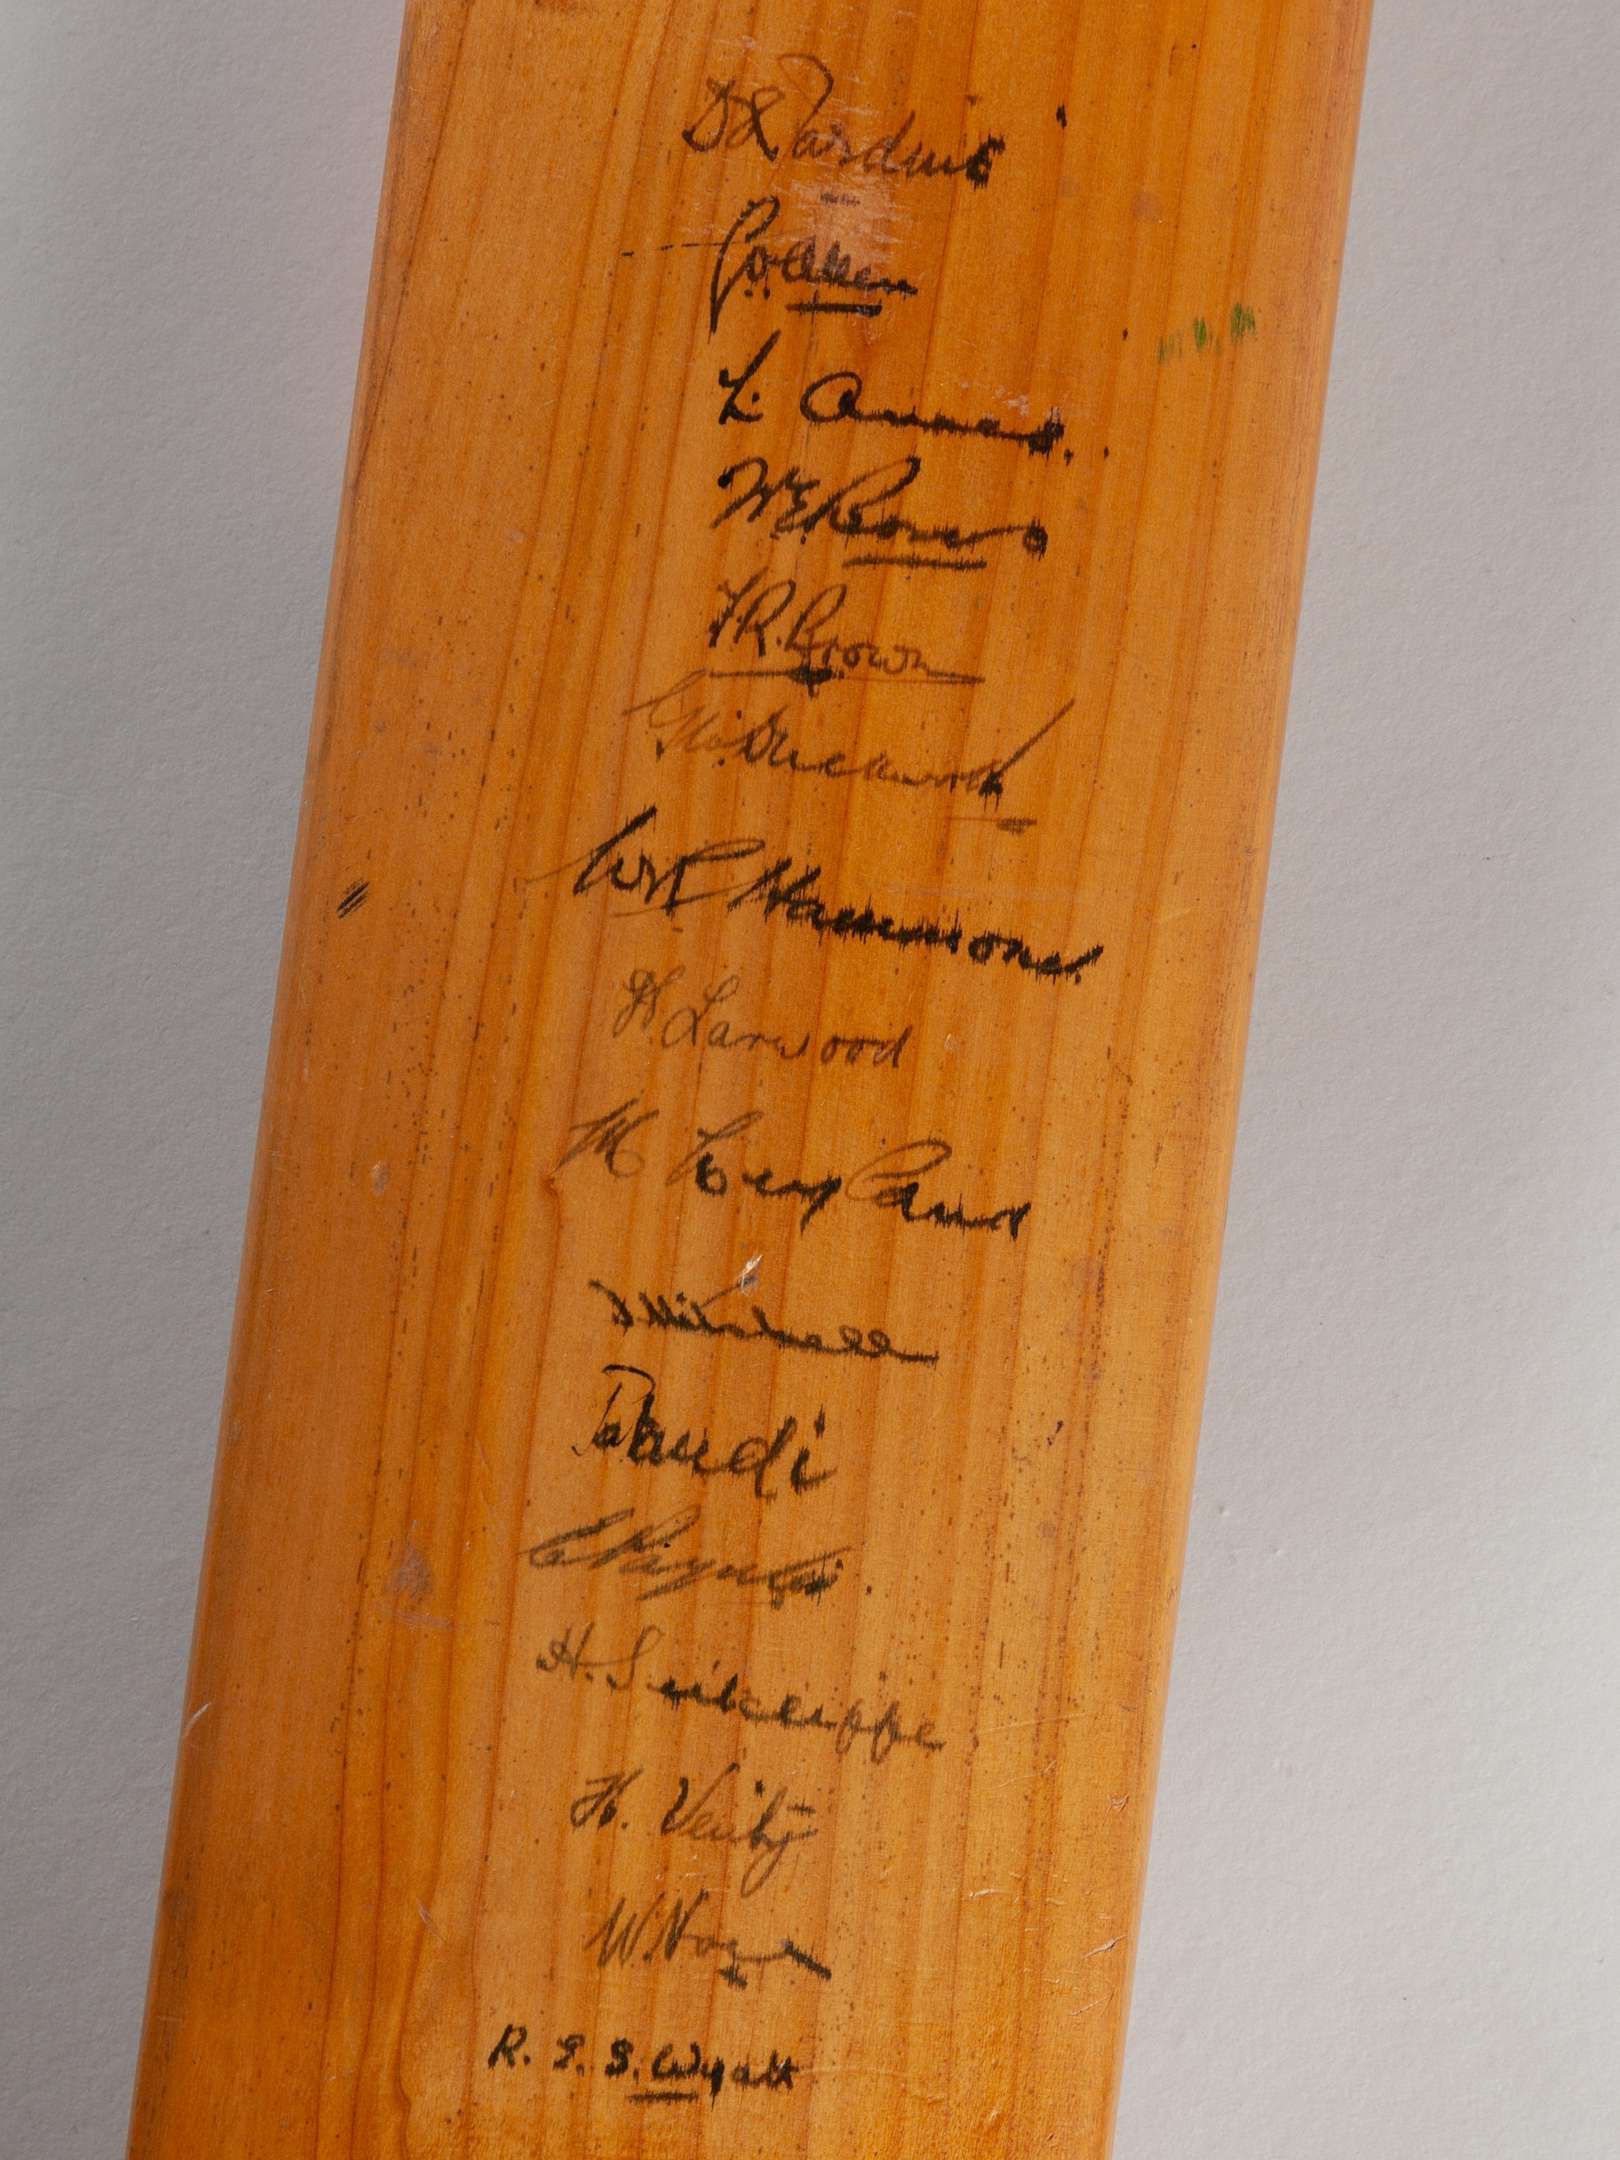 D R Jardine
G O Allen
L. Ames.
W E Bowes
F.R. Brown
G. Duckworth
W R Hammond.
H. Larwood
M Leyland
T Mitchell
Pataudi
E Paynter
H. Sutcliffe
H. Verity
W. Voce
R. E. S. Wyatt